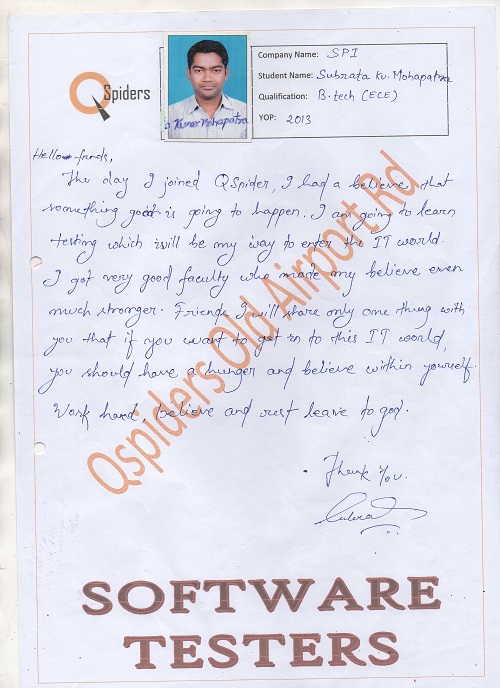 QSpiders
Company Name: SPI
Student Name: Subrata Ku. Mohapatra
Qualification: B.tech (ECE)
YOP: 2013
Kumar Mohapatra
Hello frnds,
The day I joined QSpider, I had a believe that
something good is going to happen. I am going to learn
testing which will be my way to enter the IT world.
I got very good faculty who made my believe even
much stronger. Friends I will share only one thing with
you that if you want to get in to this IT world,
you should have a hunger and believe within yourself.
Work hard, believe and rest leave to god.
Qspiders Old Airport Rd
Thank You.
SOFTWARE
TESTERS